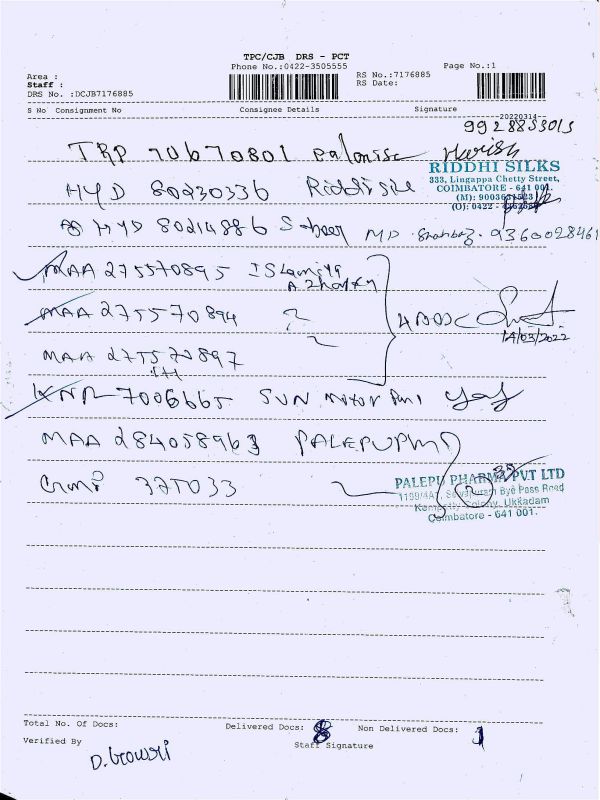 TPC/CJB DRS - PCT
Phone No.:0422-3505555
Page No.:1
Area :
Staff :
DRS No. :DCJB7176885
RS No.:7176885
RS Date:
S No Consignment No Consignee Details Signature
20220314
9928853015
TRP 70670801
Harish
RIDDHI SILKS
333, Lingappa Chetty Street,
COIMBATORE - 641 001.
HYD 80230336
HYD 80214886 Sabeer MD 9360028461
MAA 275570895 ISLamiya
MAA 275570894
4 DOC
14/03/2022
MAA 275570897
KNR 7006665 SUN motor
MAA 284058963 PALEPU
375033
PALEPU PHARMA PVT LTD
Bye Pass Road
Colony, Ukkadam
Coimbatore - 641 001.
Total No. Of Docs: Delivered Docs: 8 Non Delivered Docs: 1
Verified By Staff Signature